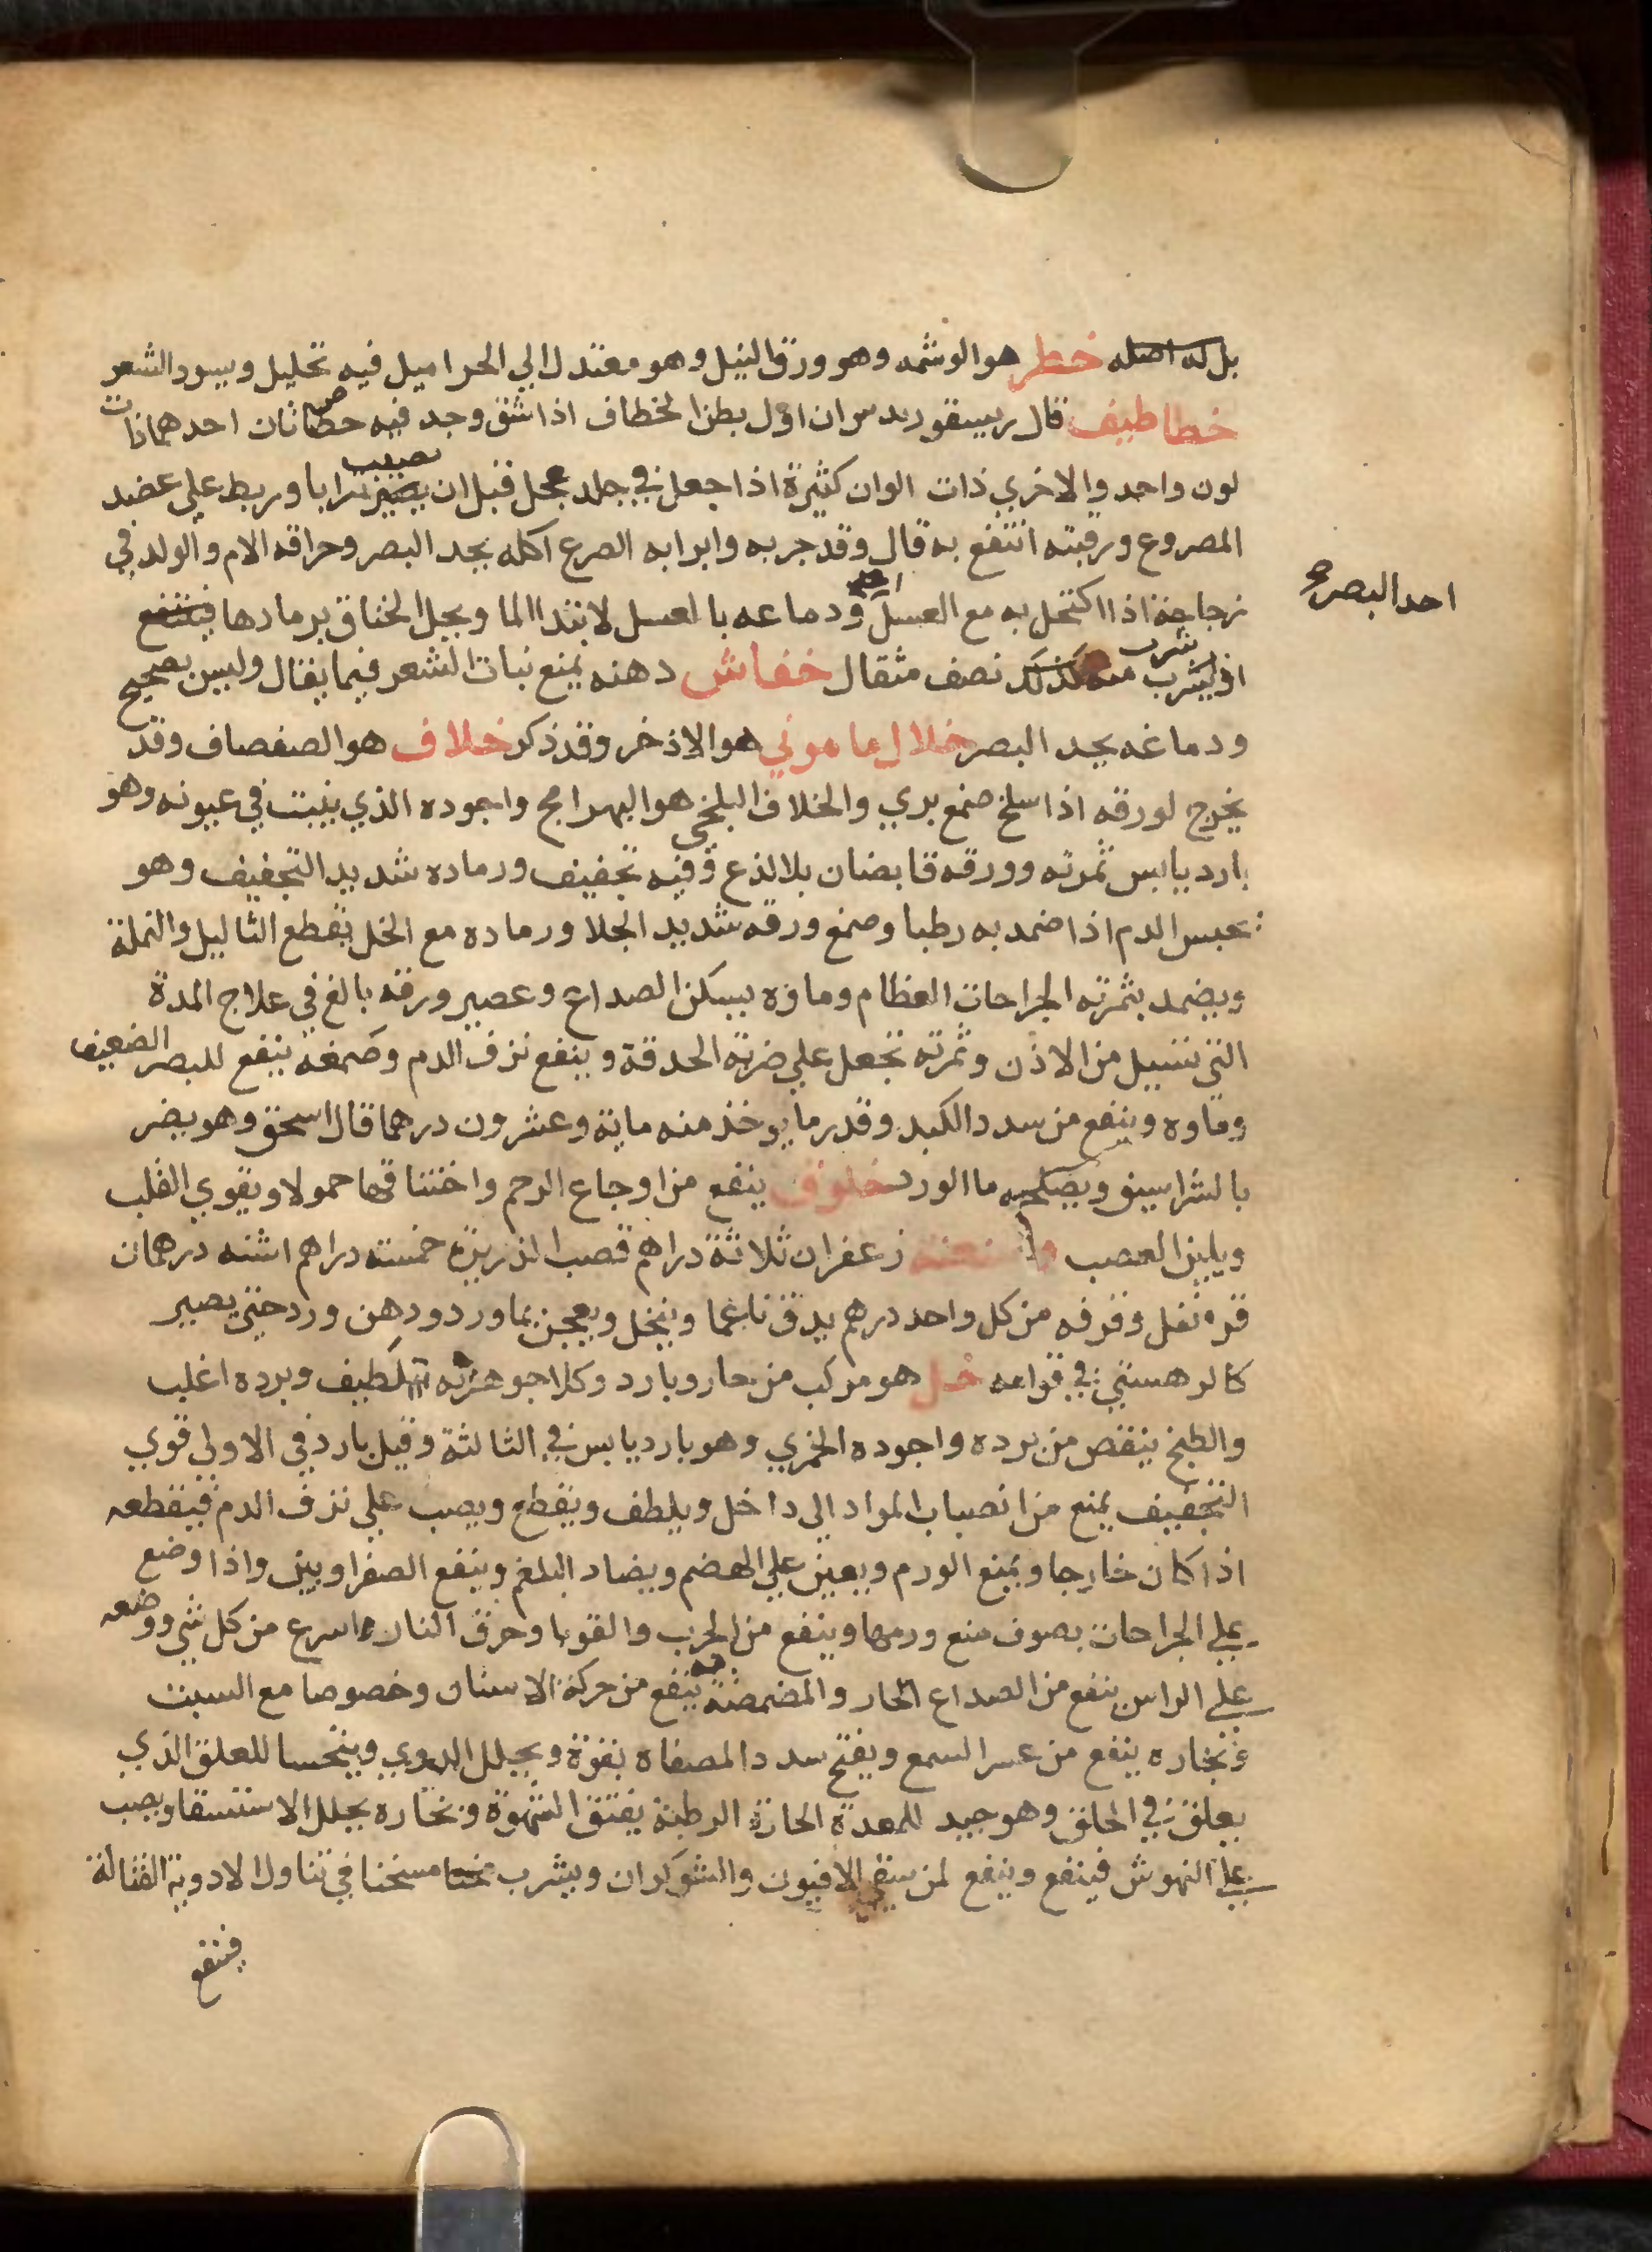 بل له اصله خطر هو الوشمه وهو ورق النيل وهو معتدل الي الحر اميل فيه تحليل ويسود الشعر
خطاطيف قال ديسقوريدس ان اول بطن الخطاف اذا شق وجد فيه حصاتان احدهما ذات
لون واحد والاخري ذات الوان كثيرة اذا جعل في جلد عجل قبل ان يصيب ترابا وربط علي عضد
المصروع ورقبته انتفع به قال وقد جربه وابرا به الصرع اكله يحد البصر وحراقه الام والولد في
زجاجة اذا اكتحل به مع العسل احد البصر ودماغه بالعسل لابتدا الما ويحلل الخناق برمادها فينتفع
او يشرب منه كذلك نصف مثقال خفاش دهنه يمنع نبات الشعر فيما يقال وليس بصحيح
ودماغه يحد البصر خلال ماموني هو الاذخر وقد ذكر خلاف هو الصفصاف وقد
يخرج لورقه اذا سلخ صمغ بري والخلاف البلخي هو البهرامج واجوده الذي ينبت في عيونه وهو
بارد يابس ثمرته وورقه قابضان بلا لذع وفيه تجفيف ورماده شديد التجفيف وهو
يحبس الدم اذا ضمد به رطبا وصمغ ورقه شديد الجلا ورماده مع الخل يقطع الثاليل والنملة
ويضمد بثمرته الجراحات العظام وماوه يسكن الصداع وعصير ورقه بالغ في علاج المدة
التي تسيل من الاذن وثمرته تجعل علي ضربة الحدقة وينفع نزف الدم وصمغه ينفع للبصر الضعيف
وماوه وينفع من سدد الكبد وقدر ما يوخذ منه ماية وعشرون درهما قال اسحق وهو يضر
بالشراسيف ويصلحه ما الورد خلوق ينفع من اوجاع الرحم واختناقها حمولا ويقوي القلب
ويلين العصب زعفران ثلاثة دراهم قصب الذريرة خمسة دراهم اشنه درهمان
قرنفل وقرفه من كل واحد درهم يدق ناعما وينخل ويعجن بما ورد ودهن ورد حتي يصير
كالرهشي في قوامه خل هو مركب من حار وبارد وكلا جوهريه لطيف وبرده اغلب
والطبخ ينقص من برده واجوده الخمري وهو بارد يابس في الثالثة وقيل بارد في الاولي قوي
التجفيف يمنع من انصباب المواد الي داخل ويلطف ويقطع ويصب علي نزف الدم فيقطعه
اذا كان خارجا ويمنع الورم ويعين علي الهضم ويضاد البلغم وينفع الصفراويين واذا وضع
علي الجراحات بصوف منع ورمها وينفع من الجرب والقوبا وحرق النار اسرع من كل شي ووضعه
علي الراس ينفع من الصداع الحار والمضمضة به ينفع من حركة الاسنان وخصوصا مع الشبت
وبخاره ينفع من عسر السمع ويفتح سدد المصفاة بقوة ويحلل الدوي ويتحسا للعلق الذي
يعلق في الحلق وهو جيد للمعدة الحارة الرطبة يفتق الشهوة وبخاره يحلل الاستسقا ويصب
علي النهوش فينفع وينفع لمن سقي الافيون والشوكران ويشرب مسخنا في تناول الادوية القتالة
فينفع
احد البصر صح